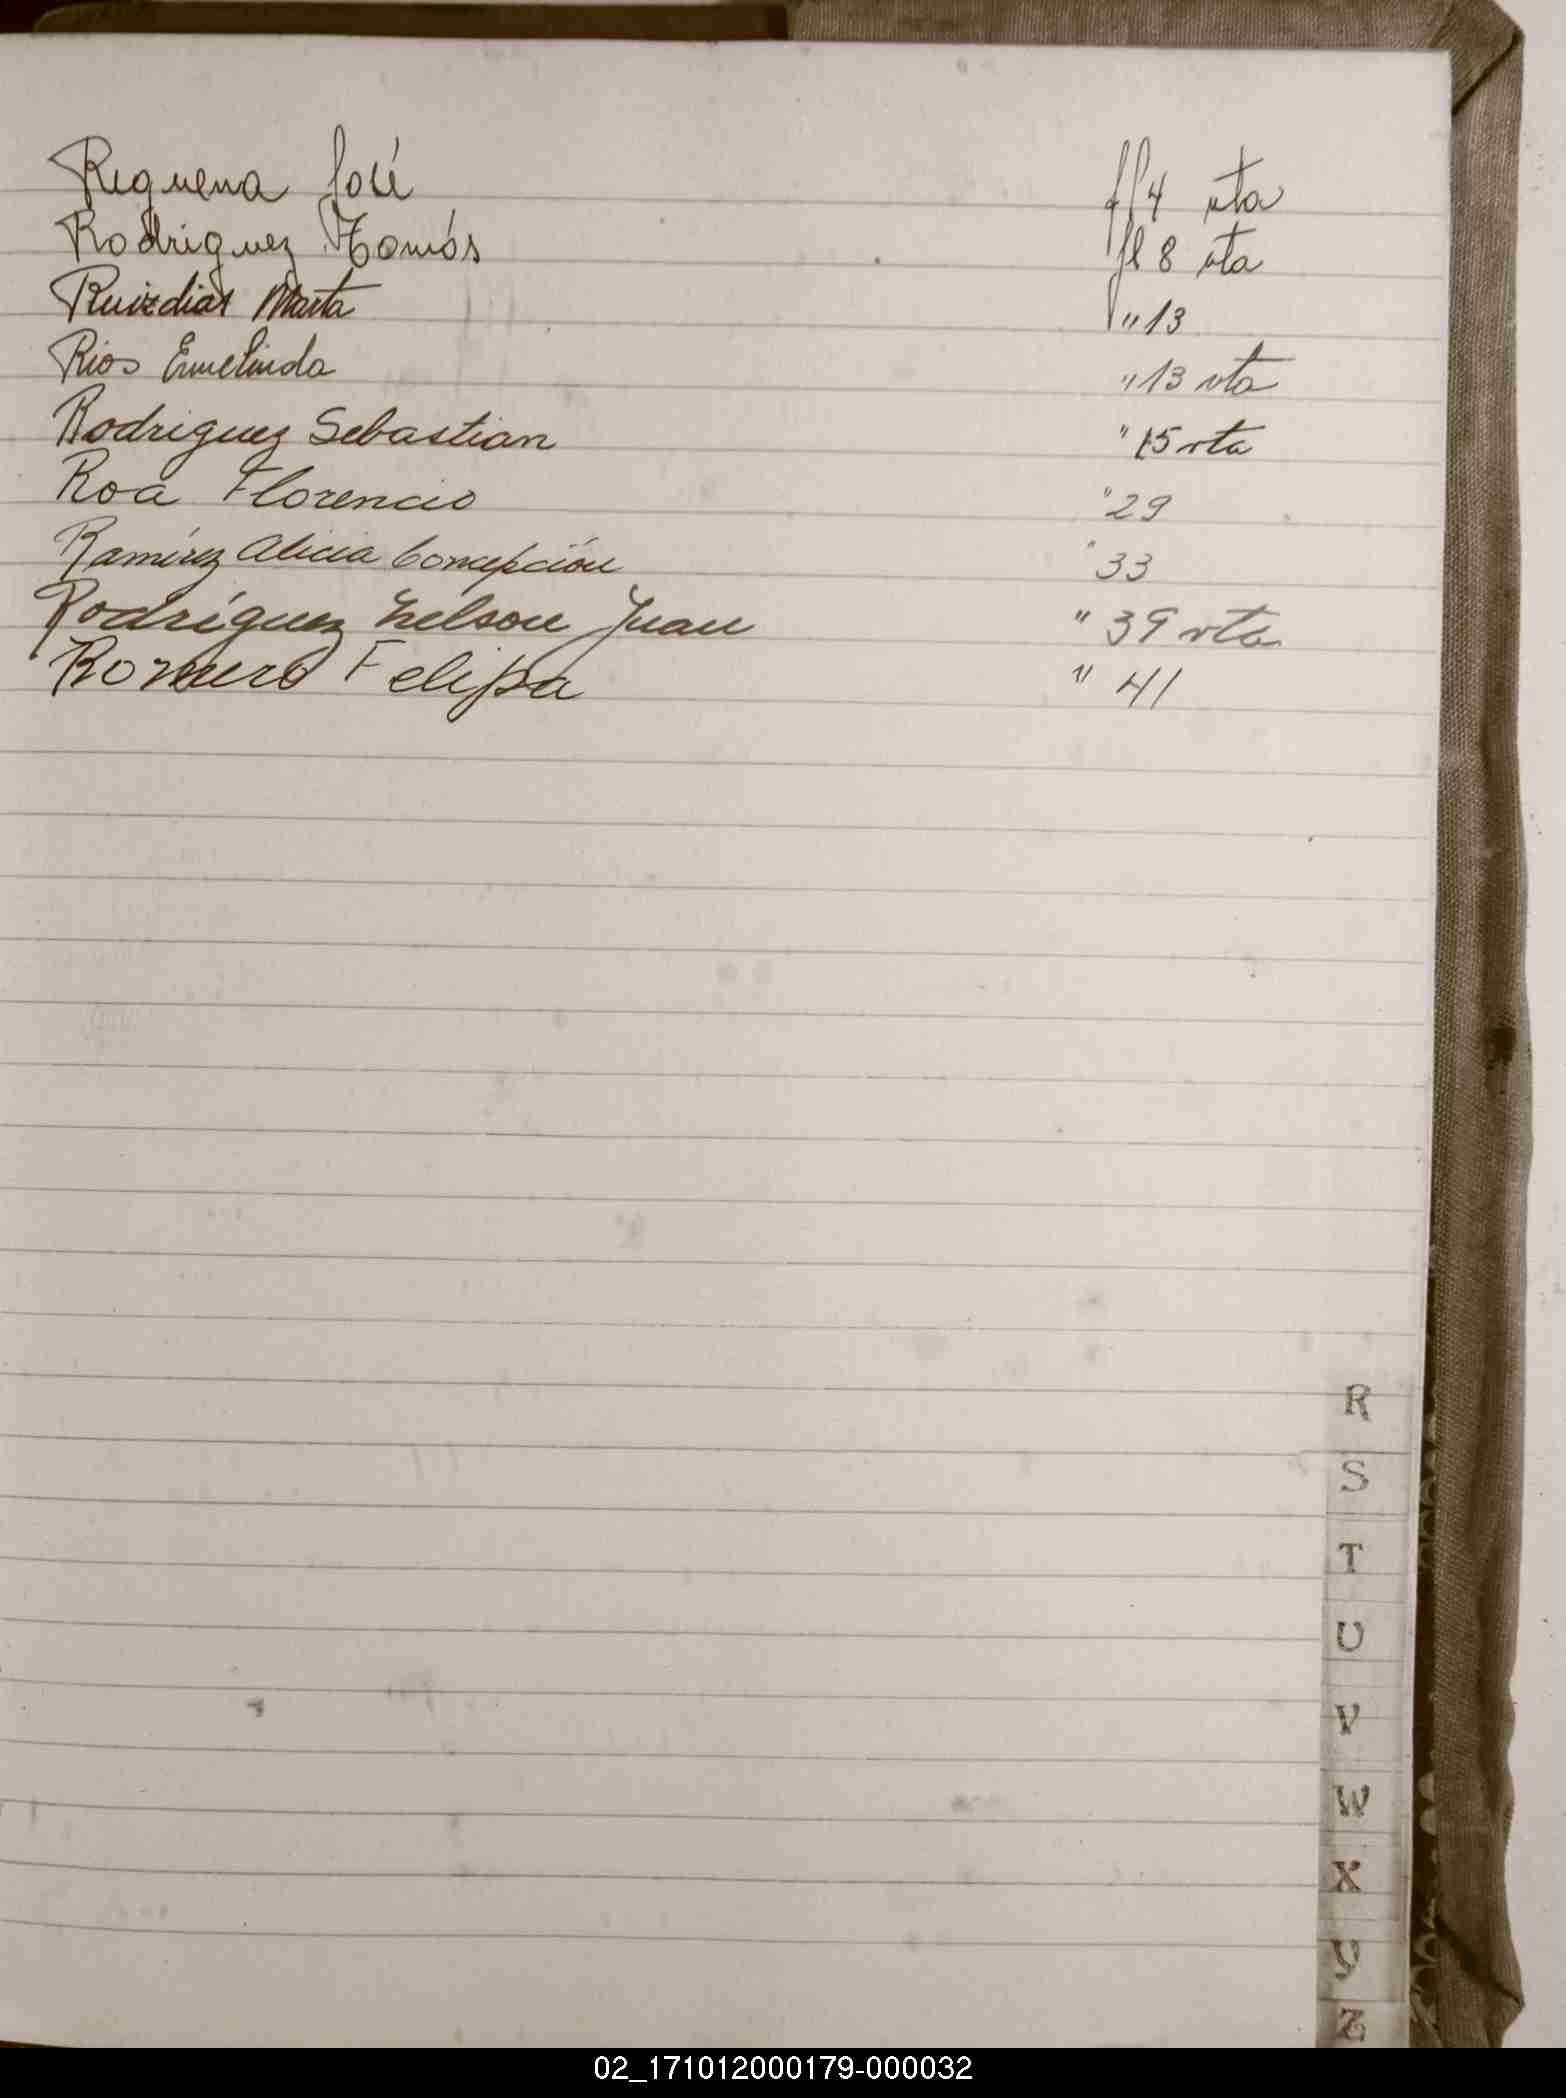 Requena José fl 4 vta
Rodriguez Tomás fl 8 vta
Ruizdias Marta " 13
Rios Ermelinda " 13 vta
Rodriguez Sebastian " 15 vta
Roa Florencio " 29
Ramírez Alicia Concepción " 33
Rodríguez Nelson Juan " 39 vta
Romero Felipa " 41
R
S
T
U
V
W
X
Y
Z
02_171012000179-000032